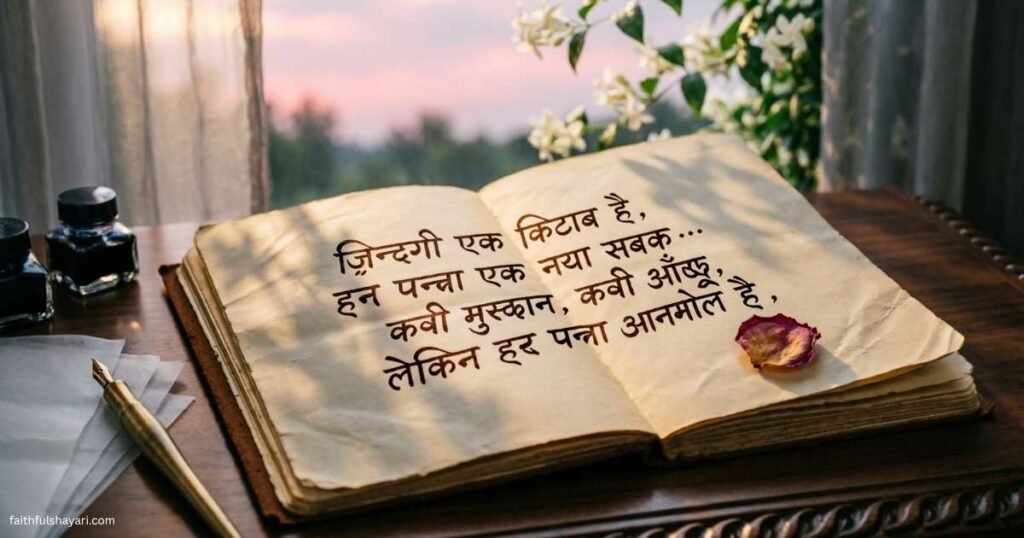 ज़िन्दगी एक किटाब है,
हॅन पन्ना एक नया सबक...
कवी मुस्कान, कवी
लेकिन हर पन्ना आनमोल है,
faithfulshayari.com